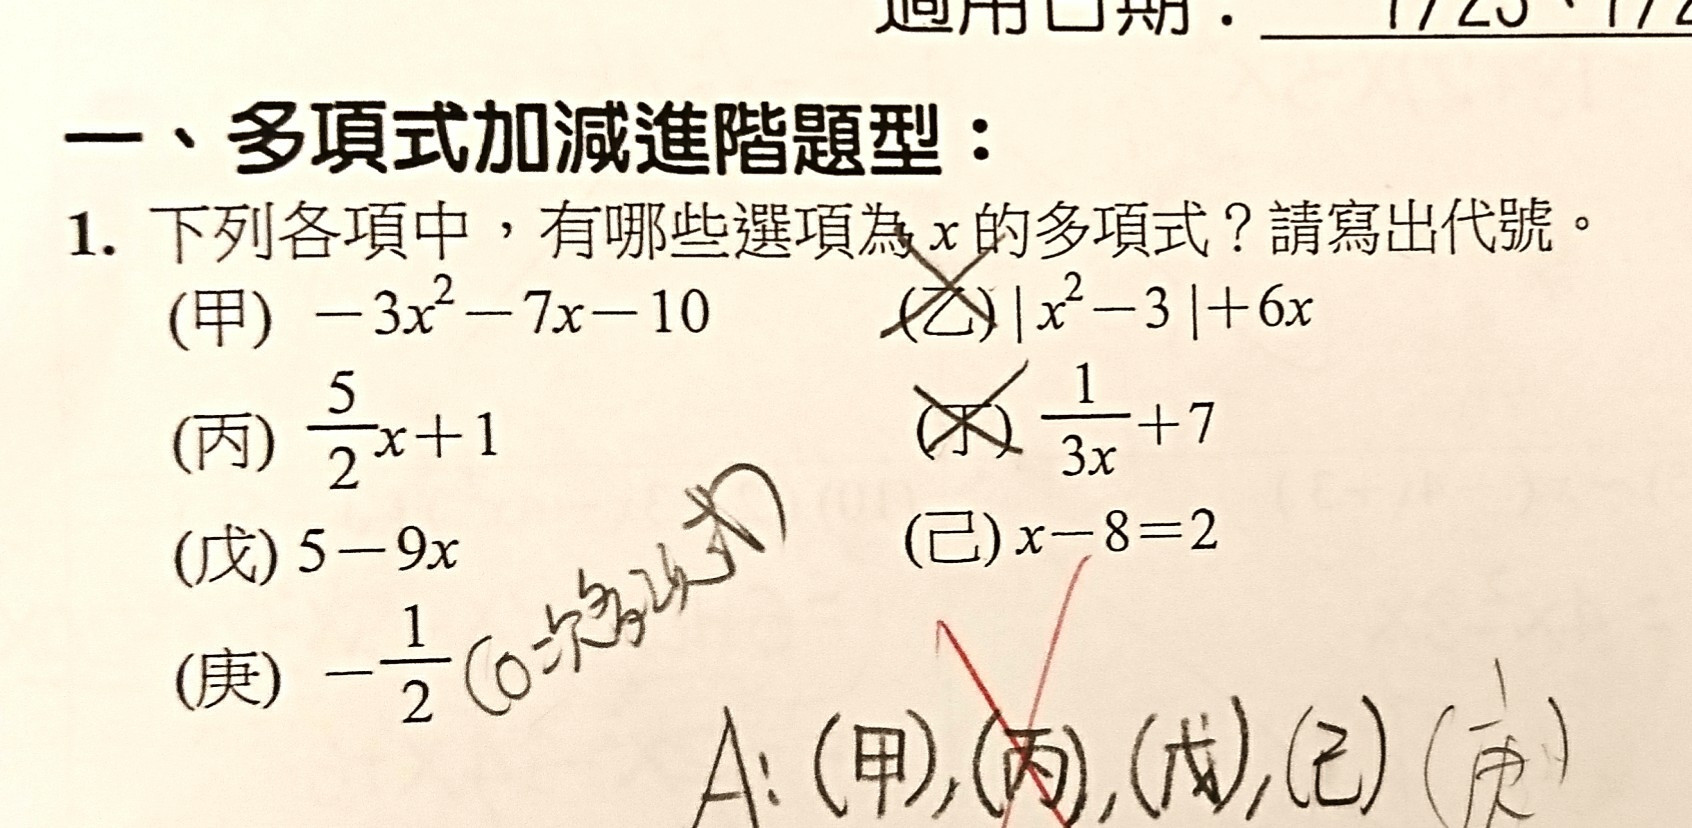 適用日期：1/23、1/2
一、多項式加減進階題型：
1. 下列各項中，有哪些選項為 x 的多項式？請寫出代號。
(甲) －3x²－7x－10 (乙) |x²－3|＋6x
(丙) 5/2 x＋1 (丁) 1/3x＋7
(戊) 5－9x (己) x－8＝2
(庚) －1/2 (0次多項式)
A: (甲), (丙), (戊), (己) (庚)